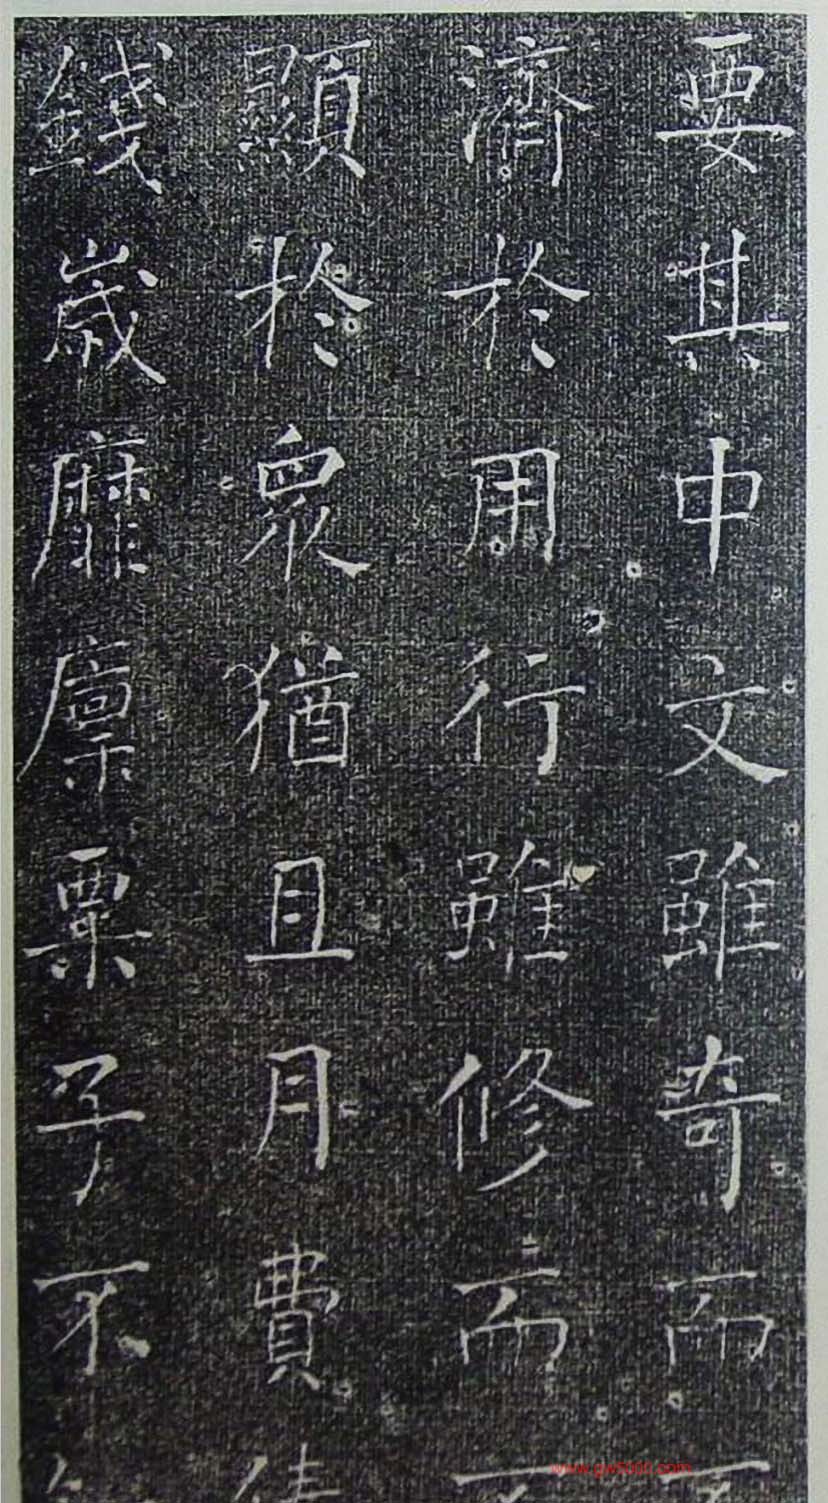 要其中文雖奇而
濟於用行雖修而
顯於眾猶且月費
錢歲靡廩粟子不
www.gw5000.com